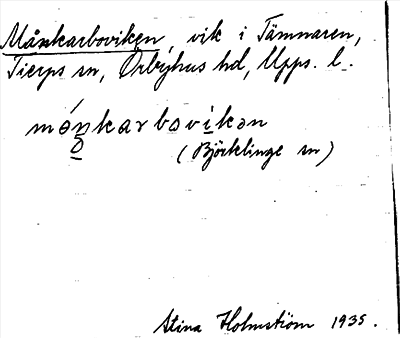 Månkarboviken, vik i Tämnaren,
Tierps sn, Örbyhus hd, Upps. l.
mónkarbovikən
(Björklinge sn)
Stina Holmström 1935.